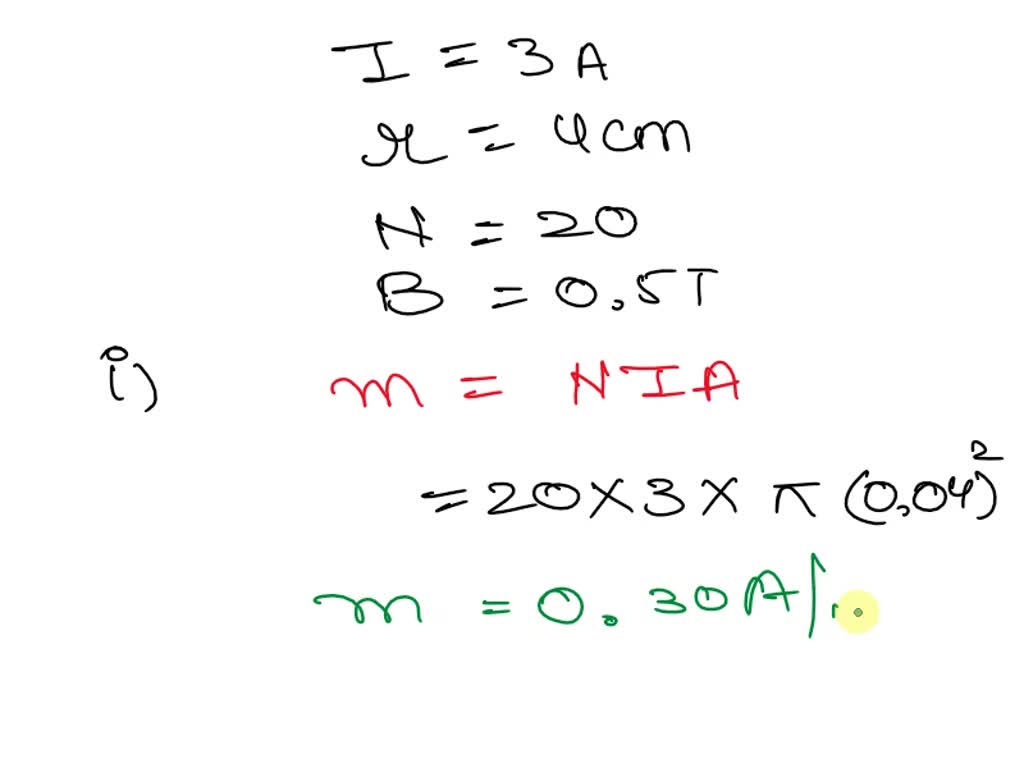 I = 3 A
r = 4 cm
N = 20
B = 0.5 T
i) m = N I A
= 20 × 3 × π (0.04)²
m = 0.30 A /